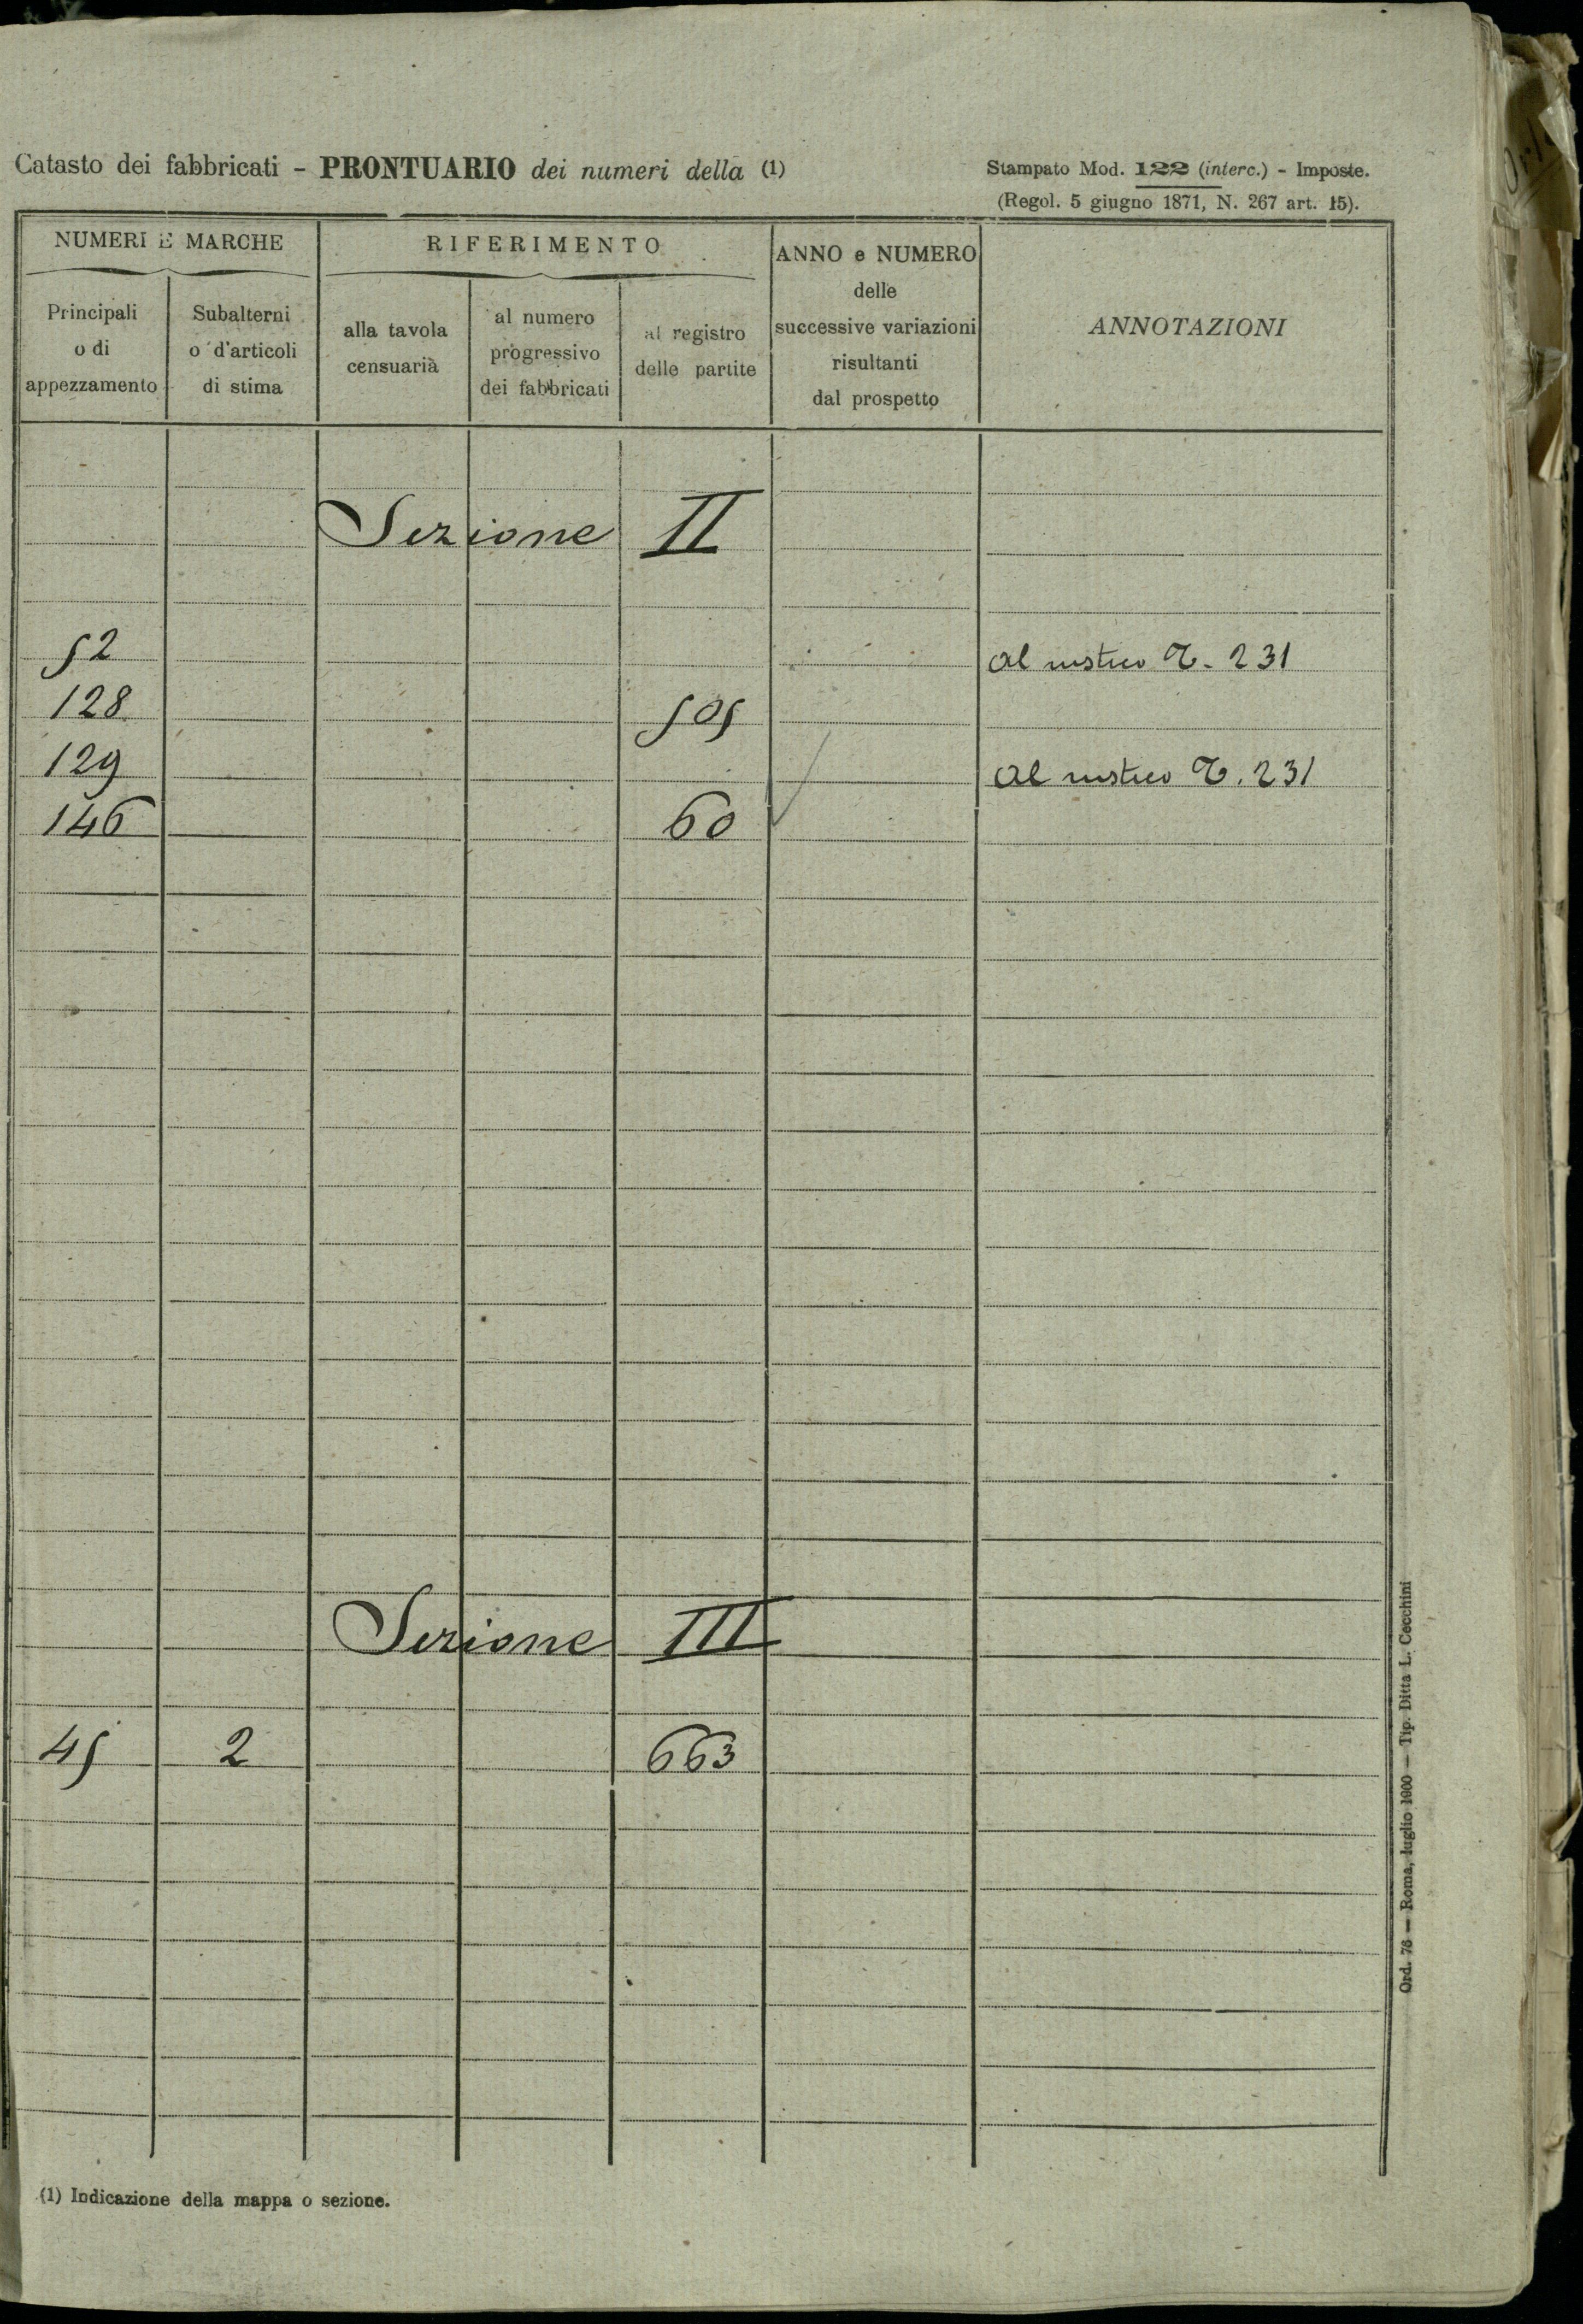 Catasto dei fabbricati - PRONTUARIO dei numeri della (1)
Stampato Mod. 122 (interc.) - Imposte.
(Regol. 5 giugno 1871, N. 267 art. 15).
NUMERI E MARCHE
RIFERIMENTO
ANNO e NUMERO
delle
successive variazioni
risultanti
dal prospetto
ANNOTAZIONI
Principali
o di
appezzamento
Subalterni
o d'articoli
di stima
alla tavola
censuaria
al numero
progressivo
dei fabbricati
al registro
delle partite
Sezione II
52 al rustico T. 231
128 505
129 al rustico T. 231
146 60
Sezione III
45 2 663
(1) Indicazione della mappa o sezione.
Ord. 76 — Roma, luglio 1900 — Tip. Ditta L. Cecchini